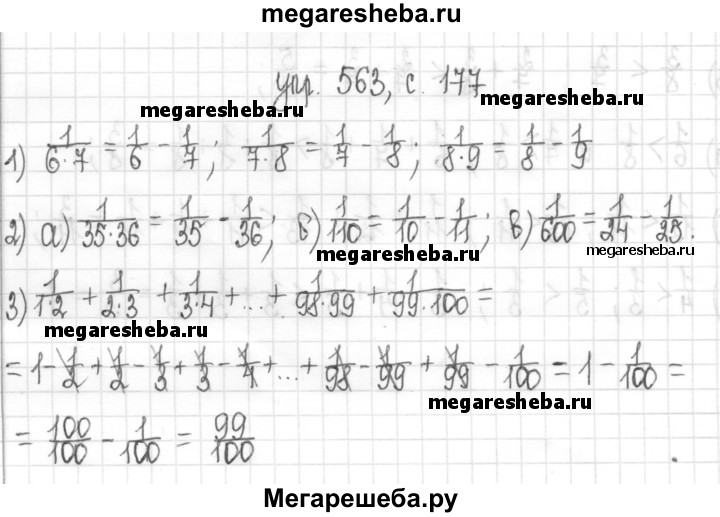 megaresheba.ru
упр. 563, с. 177
megaresheba.ru megaresheba.ru
1) 1/(6·7) = 1/6 - 1/7; 1/(7·8) = 1/7 - 1/8; 1/(8·9) = 1/8 - 1/9
2) а) 1/(35·36) = 1/35 - 1/36; б) 1/110 = 1/10 - 1/11; в) 1/600 = 1/24 - 1/25.
megaresheba.ru megaresheba.ru
3) 1/(1·2) + 1/(2·3) + 1/(3·4) + ... + 1/(98·99) + 1/(99·100) =
megaresheba.ru
= 1 - 1/2 + 1/2 - 1/3 + 1/3 - 1/4 + ... + 1/98 - 1/99 + 1/99 - 1/100 = 1 - 1/100 =
megaresheba.ru
= 100/100 - 1/100 = 99/100
Мегарешеба.ру